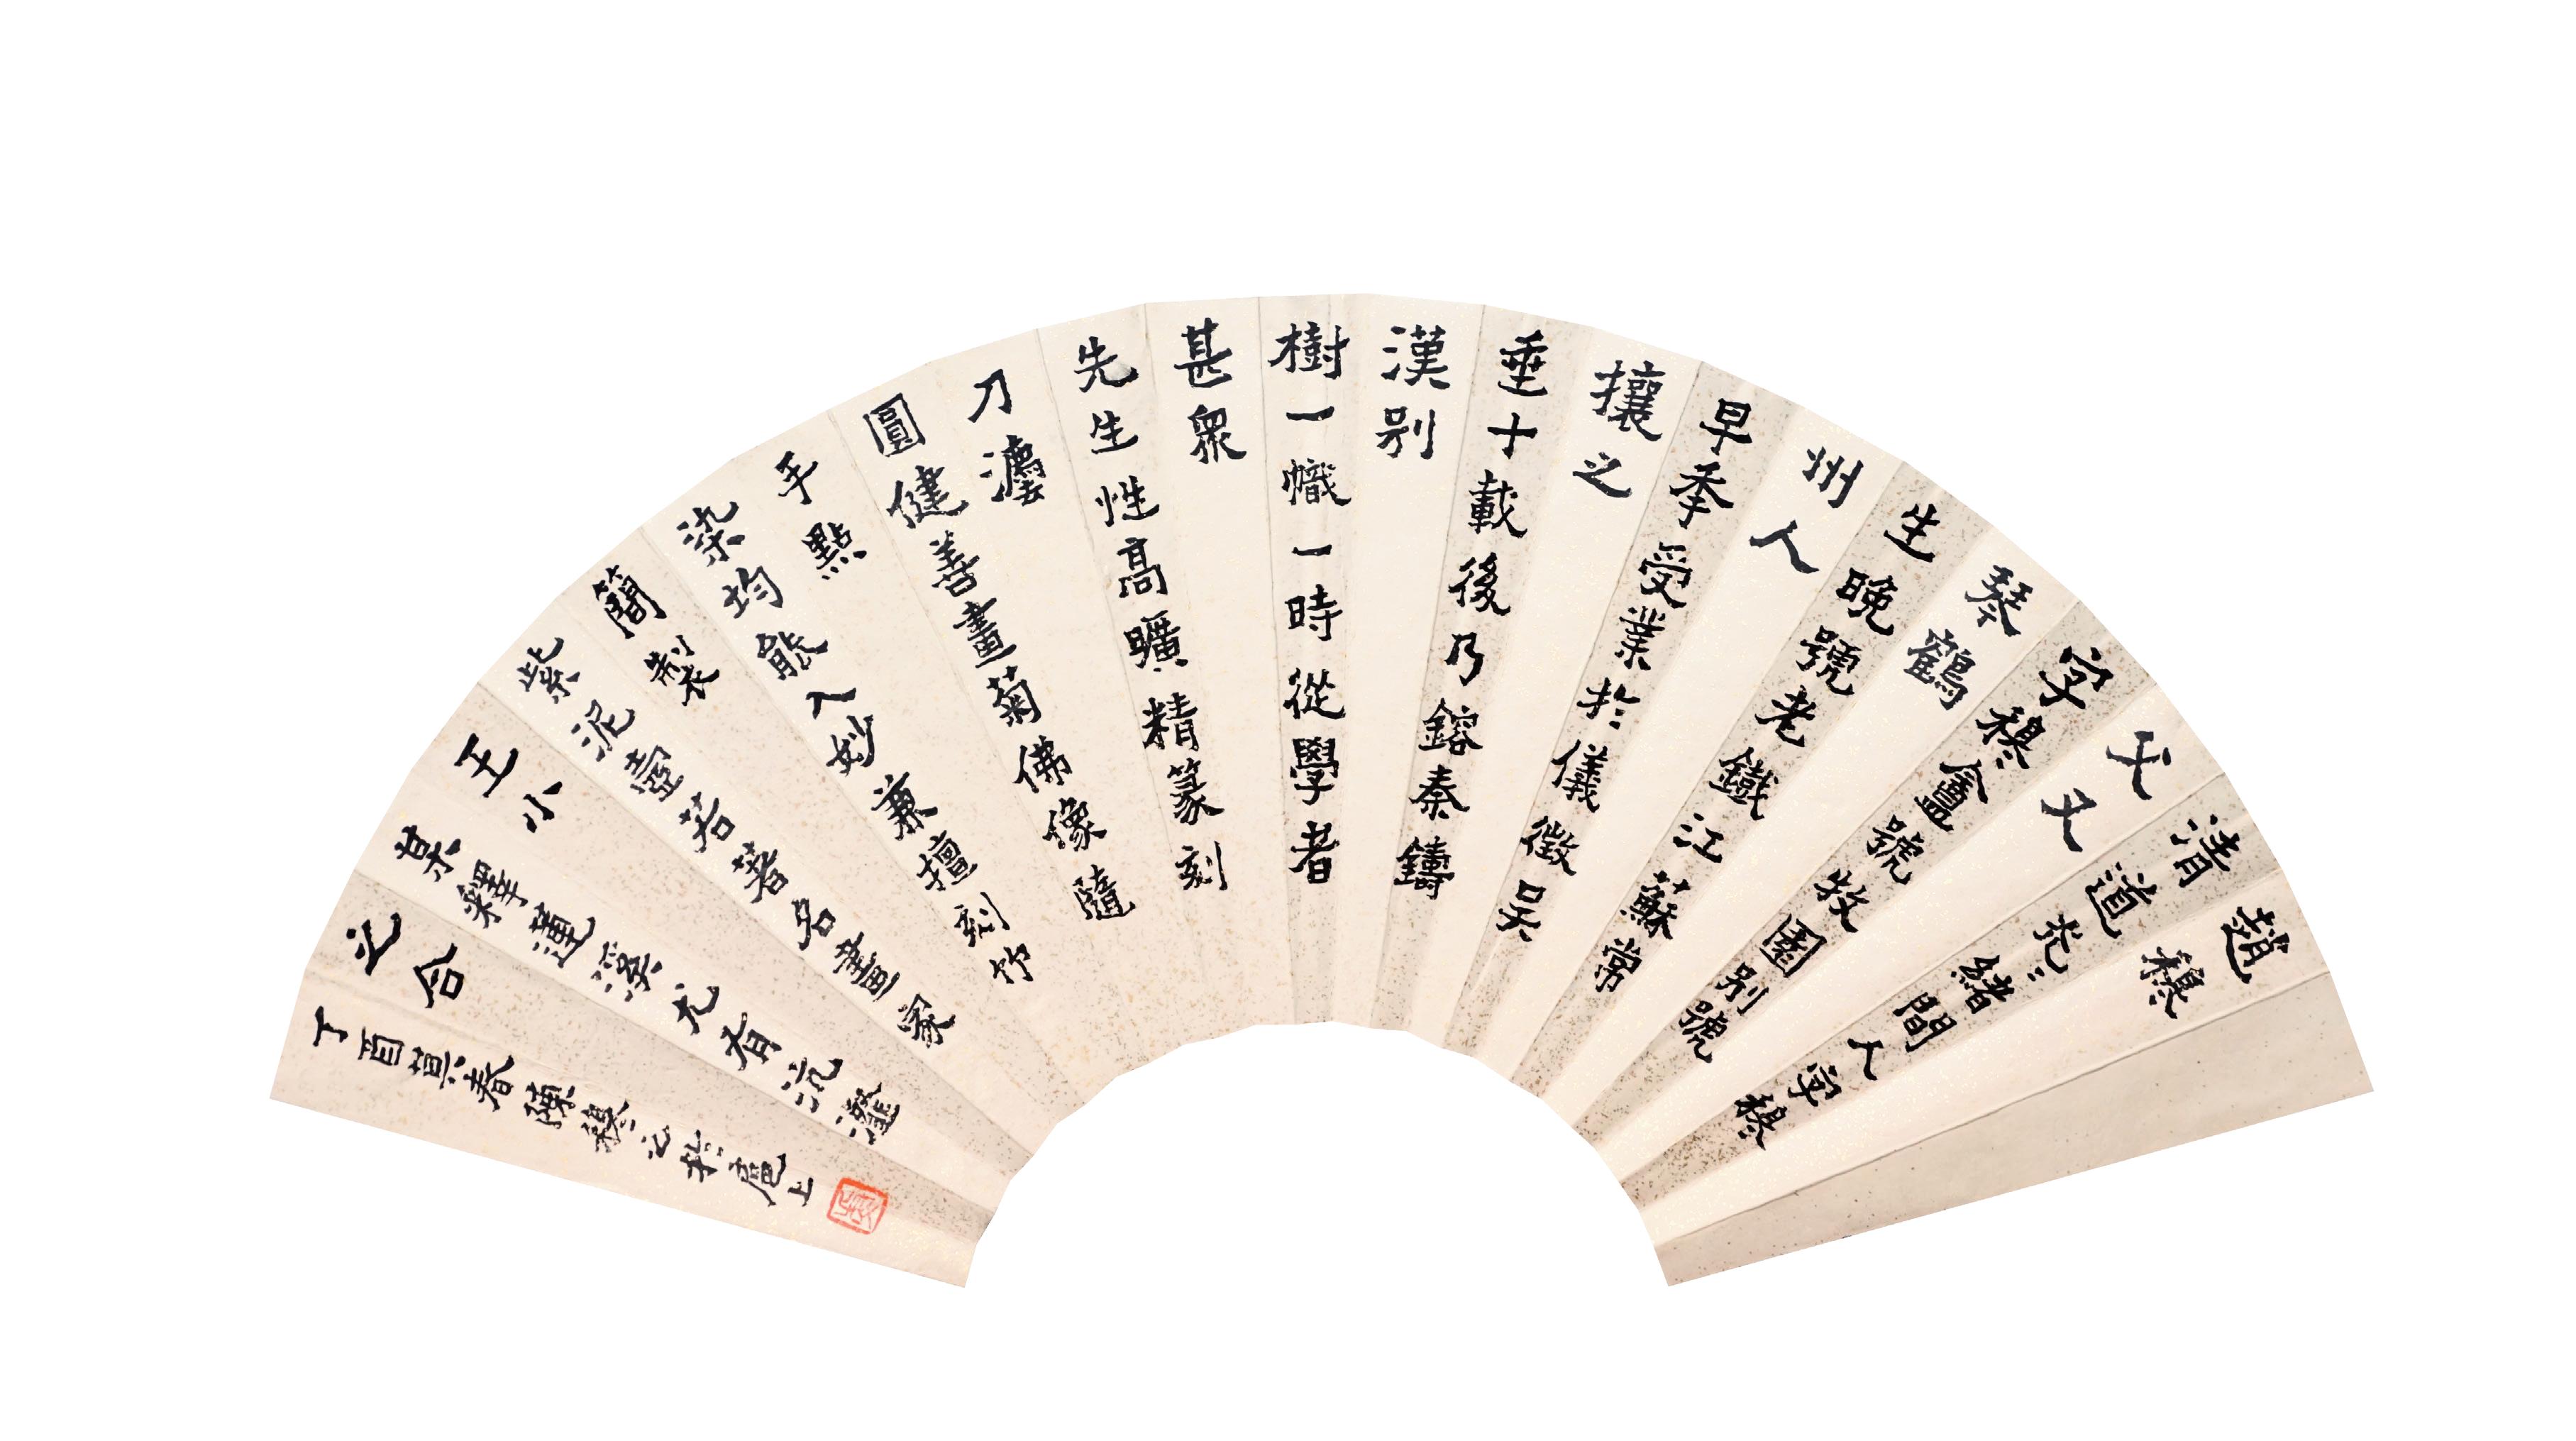 趙穆
清道光緒間人字穆
父又
字穆盦號牧園别號
琴鶴
生晚號老鐵江蘇常
州人
早秊受業於儀徵吳
攘之
垂十載後乃鎔秦鑄
漢别
樹一幟一時從學者
甚眾
先生性高曠精篆刻
刀灋
圓健善畫菊佛像隨
手點
染均能入妙兼擅刻竹
簡製
紫泥壺若著名畫家
王小
某釋蓮溪尤有沆瀣
之合
丁酉莫春陳穆之於扈上